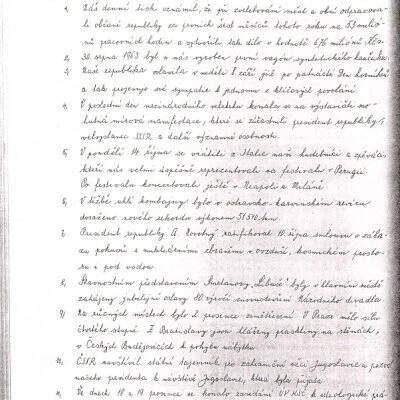 1, Náš denní tisk oznámil, že při zvelebování měst a obcí odpracova-
li občané republiky za prvních šest měsíců tohoto roku na 53 milio-
nů pracovních hodin a vytvořili tak dílo v hodnotě 676 milionů Kčs.
2, 30. srpna 1963 byl u nás vyroben první vagon syntetického kaučuku.
3, Naše republika slavila v neděli 8. září již po patnácté Den horníků
a tak projevuje své sympatie k jednomu z klíčových povolání.
4, V poslední den mezinárodního veletrhu konala se na výstavišti mo-
hutná mírová manifestace, které se zúčastnili president republiky,
velvyslanec SSSR a další významné osobnosti.
5, V pondělí 14. října se vrátili z Italie naši hudebníci a zpěváci,
kteří nás velmi úspěšně reprezentovali na festivalu v Perugii.
Po festivalu koncertovali ještě v Neapoli a Miláně.
6, V těžbě uhlí kombajny bylo v ostravsko-karvinském revíru
dosaženo nového rekordu výkonem 51.510 tun.
7, President republiky A. Novotný ratifikoval 10. října smlouvu o záka-
zu pokusů s nukleárními zbraněmi v ovzduší, kosmickém prosto-
ru a pod vodou.
8, Slavnostním představením Smetanovy "Libuše" byly v hlavním městě
zahájeny jubilejní oslavy 80. výročí znovuotevření Národního divadla.
9, Na různých místech bylo 2. prosince zemětřesení. V Praze mělo sílu
čtvrtého stupně. Z Bratislavy jsou hlášeny praskliny na stěnách,
v Českých Budějovicích k pohybu nábytku.
10, ČSSR navštívil státní tajemník pro zahraniční věci Jugoslavie a pozval
našeho presidenta k návštěvě Jugoslavie, která byla přijata.
11, Ve dnech 18. a 19. prosince se konalo zasedání ÚV KSČ k ideologické prá-